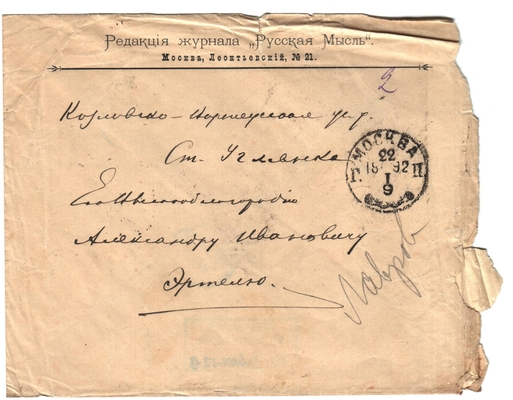 Редакція журнала „Русская Мысль“.
Москва, Леонтьевскій, № 21.
2
Козловско-Воронежская ж. д.
Ст. Углянка
Его Высокоблагородію
Александру Ивановичу
Эртелю.
МОСКВА
22
I
1892
9
Г. П
Лавров